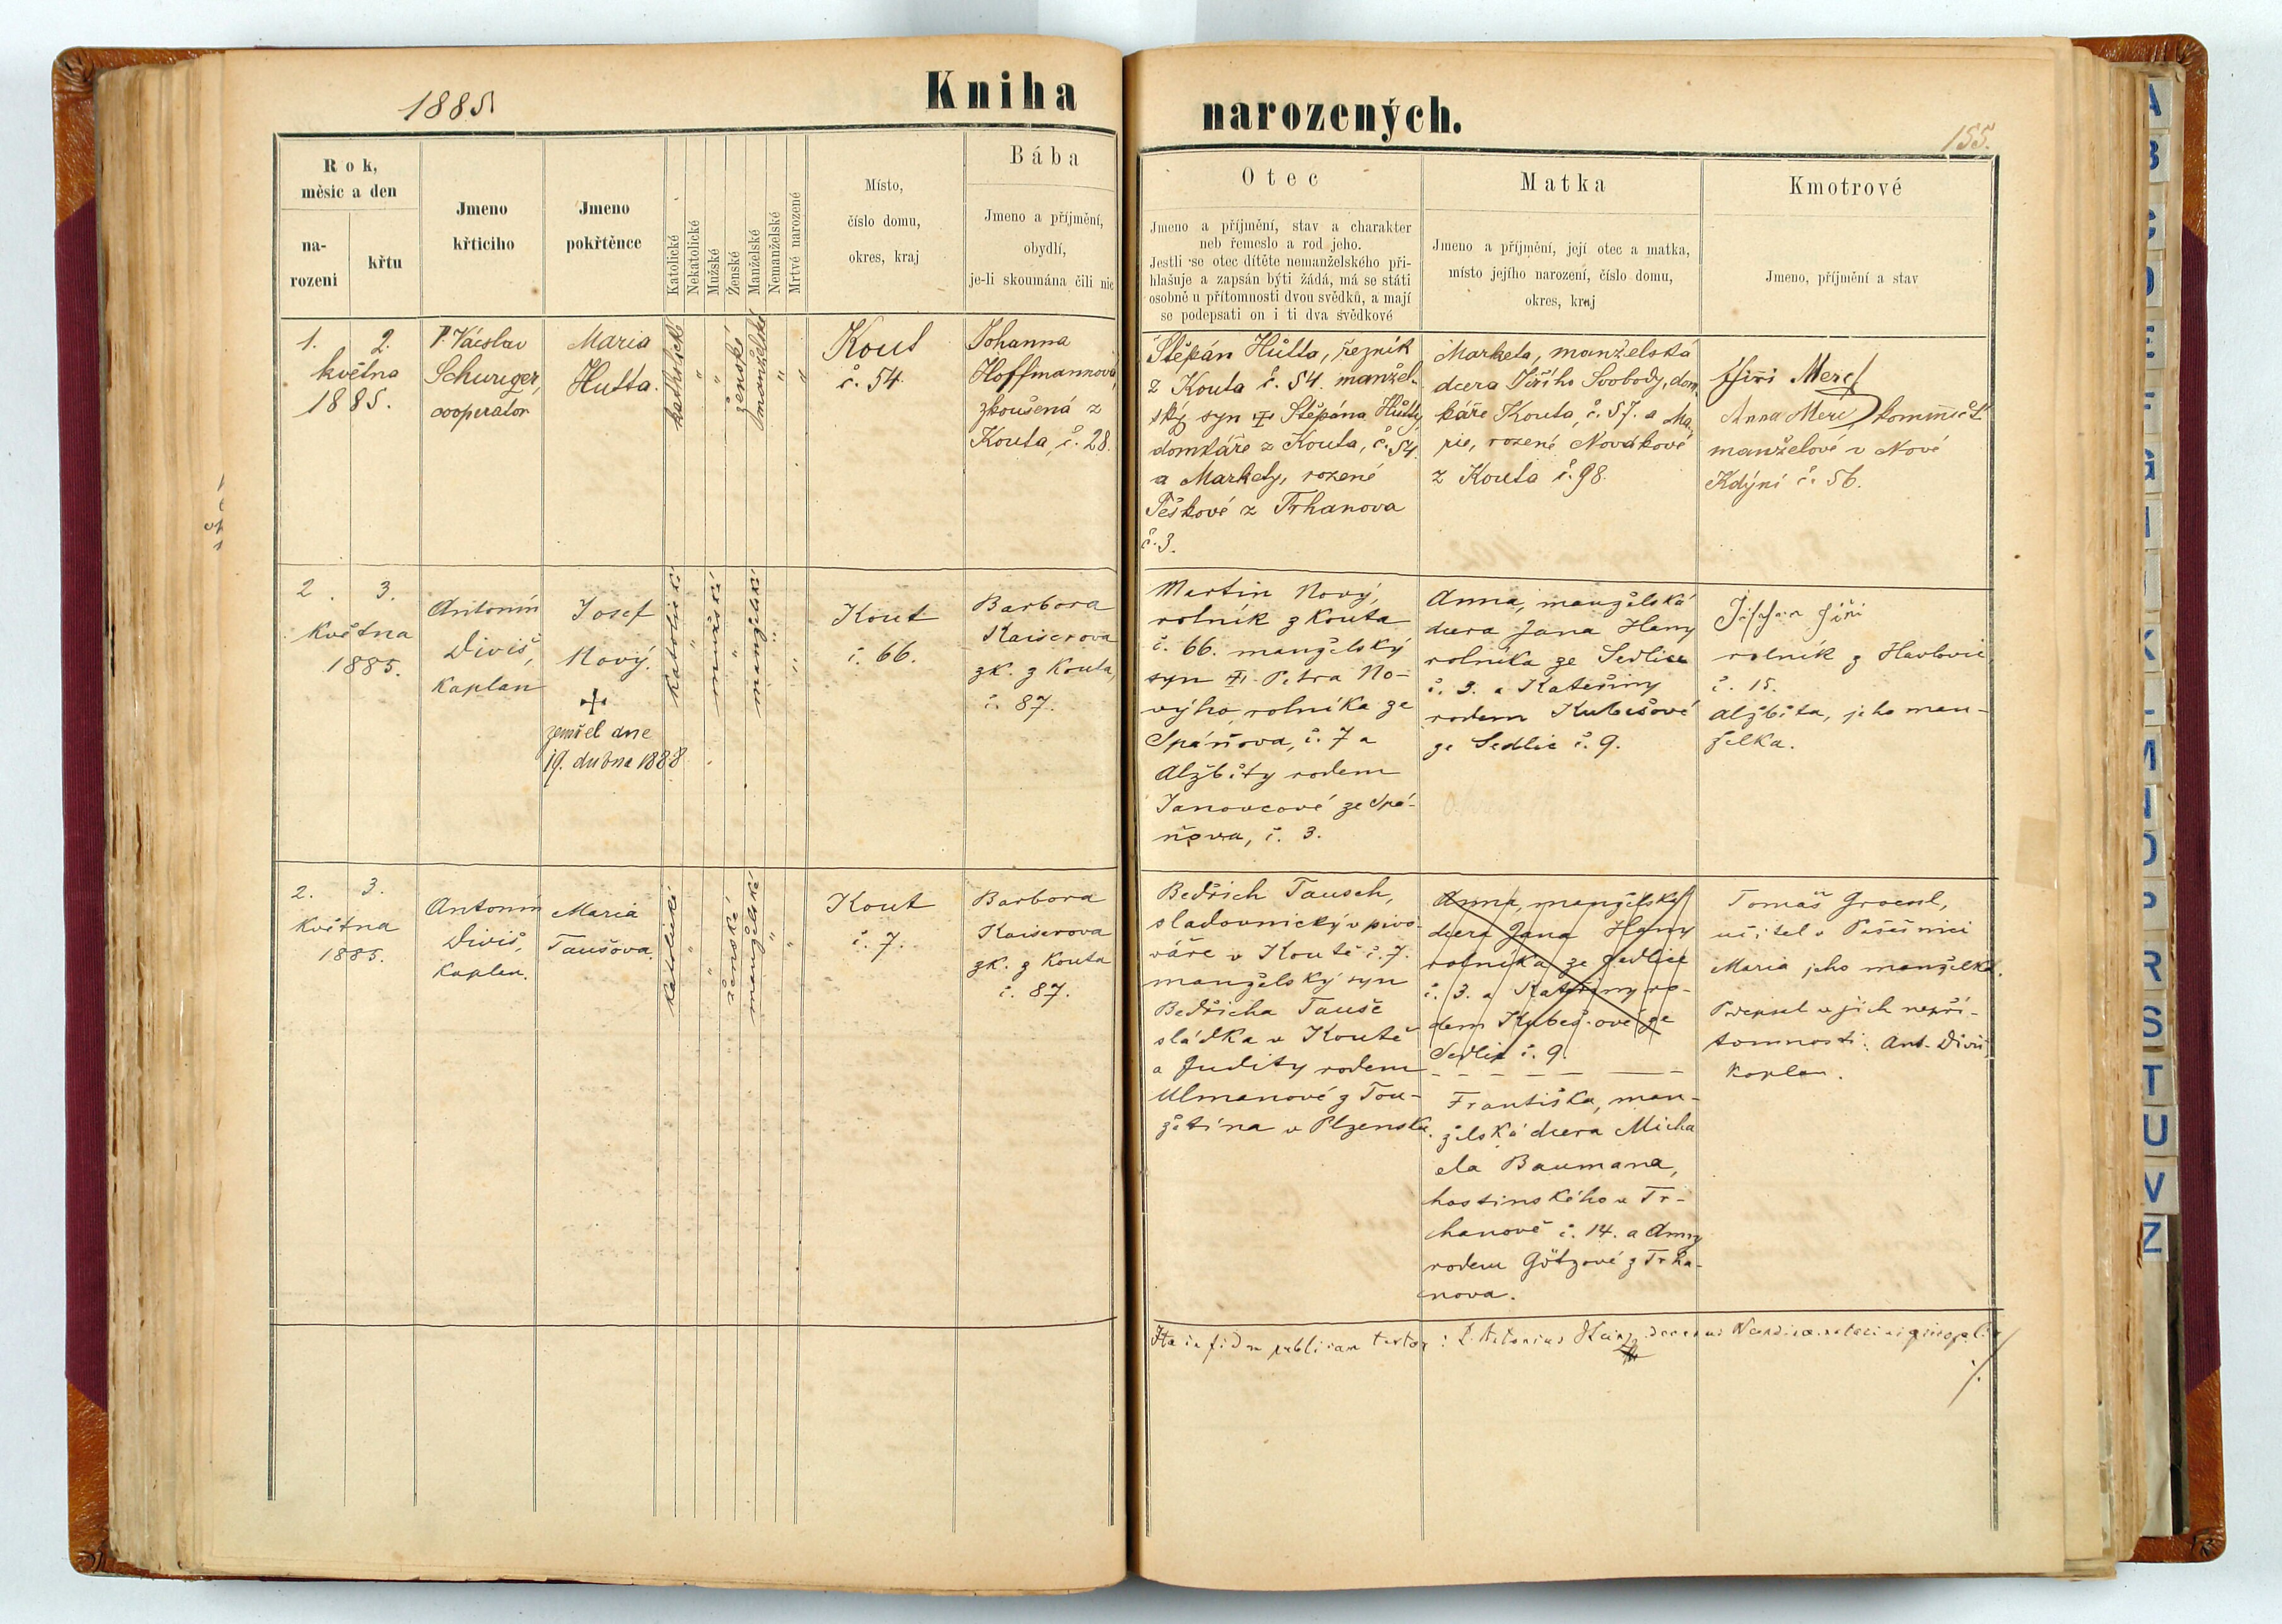 1885
Kniha
narozených.
155.
Rok,
měsíc a den
na-
rozeni
křtu
Jmeno
křticiho
Jmeno
pokřtěnce
Katolické
Nekatolické
Mužské
Ženské
Manželské
Nemanželské
Mrtvé narozené
Místo,
číslo domu,
okres, kraj
Bába
Jmeno a příjmění,
obydlí,
je-li skoumána čili nic
Otec
Jmeno a příjmění, stav a charakter
neb řemeslo a rod jeho.
Jestli se otec dítěte nemanželského při-
hlašuje a zapsán býti žádá, má se státi
osobně u přítomnosti dvou svědků, a mají
se podepsati on i ti dva svědkové
Matka
Jmeno a příjmění, její otec a matka,
místo jejího narození, číslo domu,
okres, kraj
Kmotrové
Jmeno, příjmění a stav
1. 2.
května
1885.
P. Václav
Schwiger,
cooperator
Maria
Hutta.
katholické
"
"
ženské
manželské
"
"
Kout
č. 54.
Johanna
Hoffmannová,
zkoušená z
Kouta, č. 28.
Štěpán Hůtta, řezník
z Kouta č. 54. manžel-
ský syn Štěpána Hůtty,
domkáře z Kouta, č. 54.
a Markety, rozené
Peškové z Trhanova
č. 3.
Marketa, manželská
dcera Jiřího Svobody, dom
káře Kouta, č. 57. a Ma
rie, rozené Novákové
z Kouta č. 98.
Jiří Merc
Anna Merc
manželové v Nové
Kdýni č. 56.
2. 3.
Května
1885.
Antonín
Diviš,
Kaplan
Josef
Nový.
zemřel dne
19. dubna 1888
Katolické
"
mužské
"
manželské
"
"
Kout
č. 66.
Barbora
Kaiserova
zk. z Kouta,
č. 87.
Martin Nový,
rolník z Kouta
č. 66. manželský
syn Petra No-
výho, rolníka ze
Spáňova, č. 7 a
Alžběty rodem
Janovcové ze Spá-
ňova, č. 3.
Anna, manželská
dcera Jana Hany
rolníka ze Sedlice
č. 3. a Kateřiny
rodem Kubešové
ze Sedlic č. 9.
Jiří
rolník z Havlovic
č. 15.
Alžběta, jeho man-
želka.
2. 3.
Května
1885.
Antonín
Diviš,
Kaplan.
Maria
Taušova.
Katolické
"
"
ženské
manželské
"
"
Kout
č. 7.
Barbora
Kaiserova
zk. z Kouta
č. 87.
Bedřich Tausch,
sladovnický v pivo-
váře v Koutě č. 7.
manželský syn
Bedřicha Tauše
sládka v Koutě
a Judity rodem
Ulmanové z Tou-
žetína v Plzensku.
Anna, manželská
dcera Jana Hany
rolníka ze Sedlice
č. 3. a Kateřiny ro-
dem Kubešové ze
Sedlic č. 9.
Františka, man-
želská dcera Micha
ela Baumana,
hostinského v Tr-
hanově č. 14. a Anny
rodem Götzové z Trha-
nova.
Tomáš Groessl,
učitel v
Maria jeho manželka.
Podepsal v jich nepří-
tomnosti: Ant. Diviš
Kaplan.
Ita in fidem publicam testor: P. Antonius